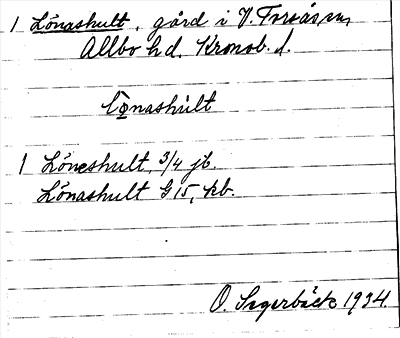 1 Lönashult, gård i V. Torsås sn,
Allbo hd. Kronob. l.
lọ̈nashùlt
1 Löneshult, 3/4 jb.
Lönashult G 15, kb.
O. Sagerbäck 1934.